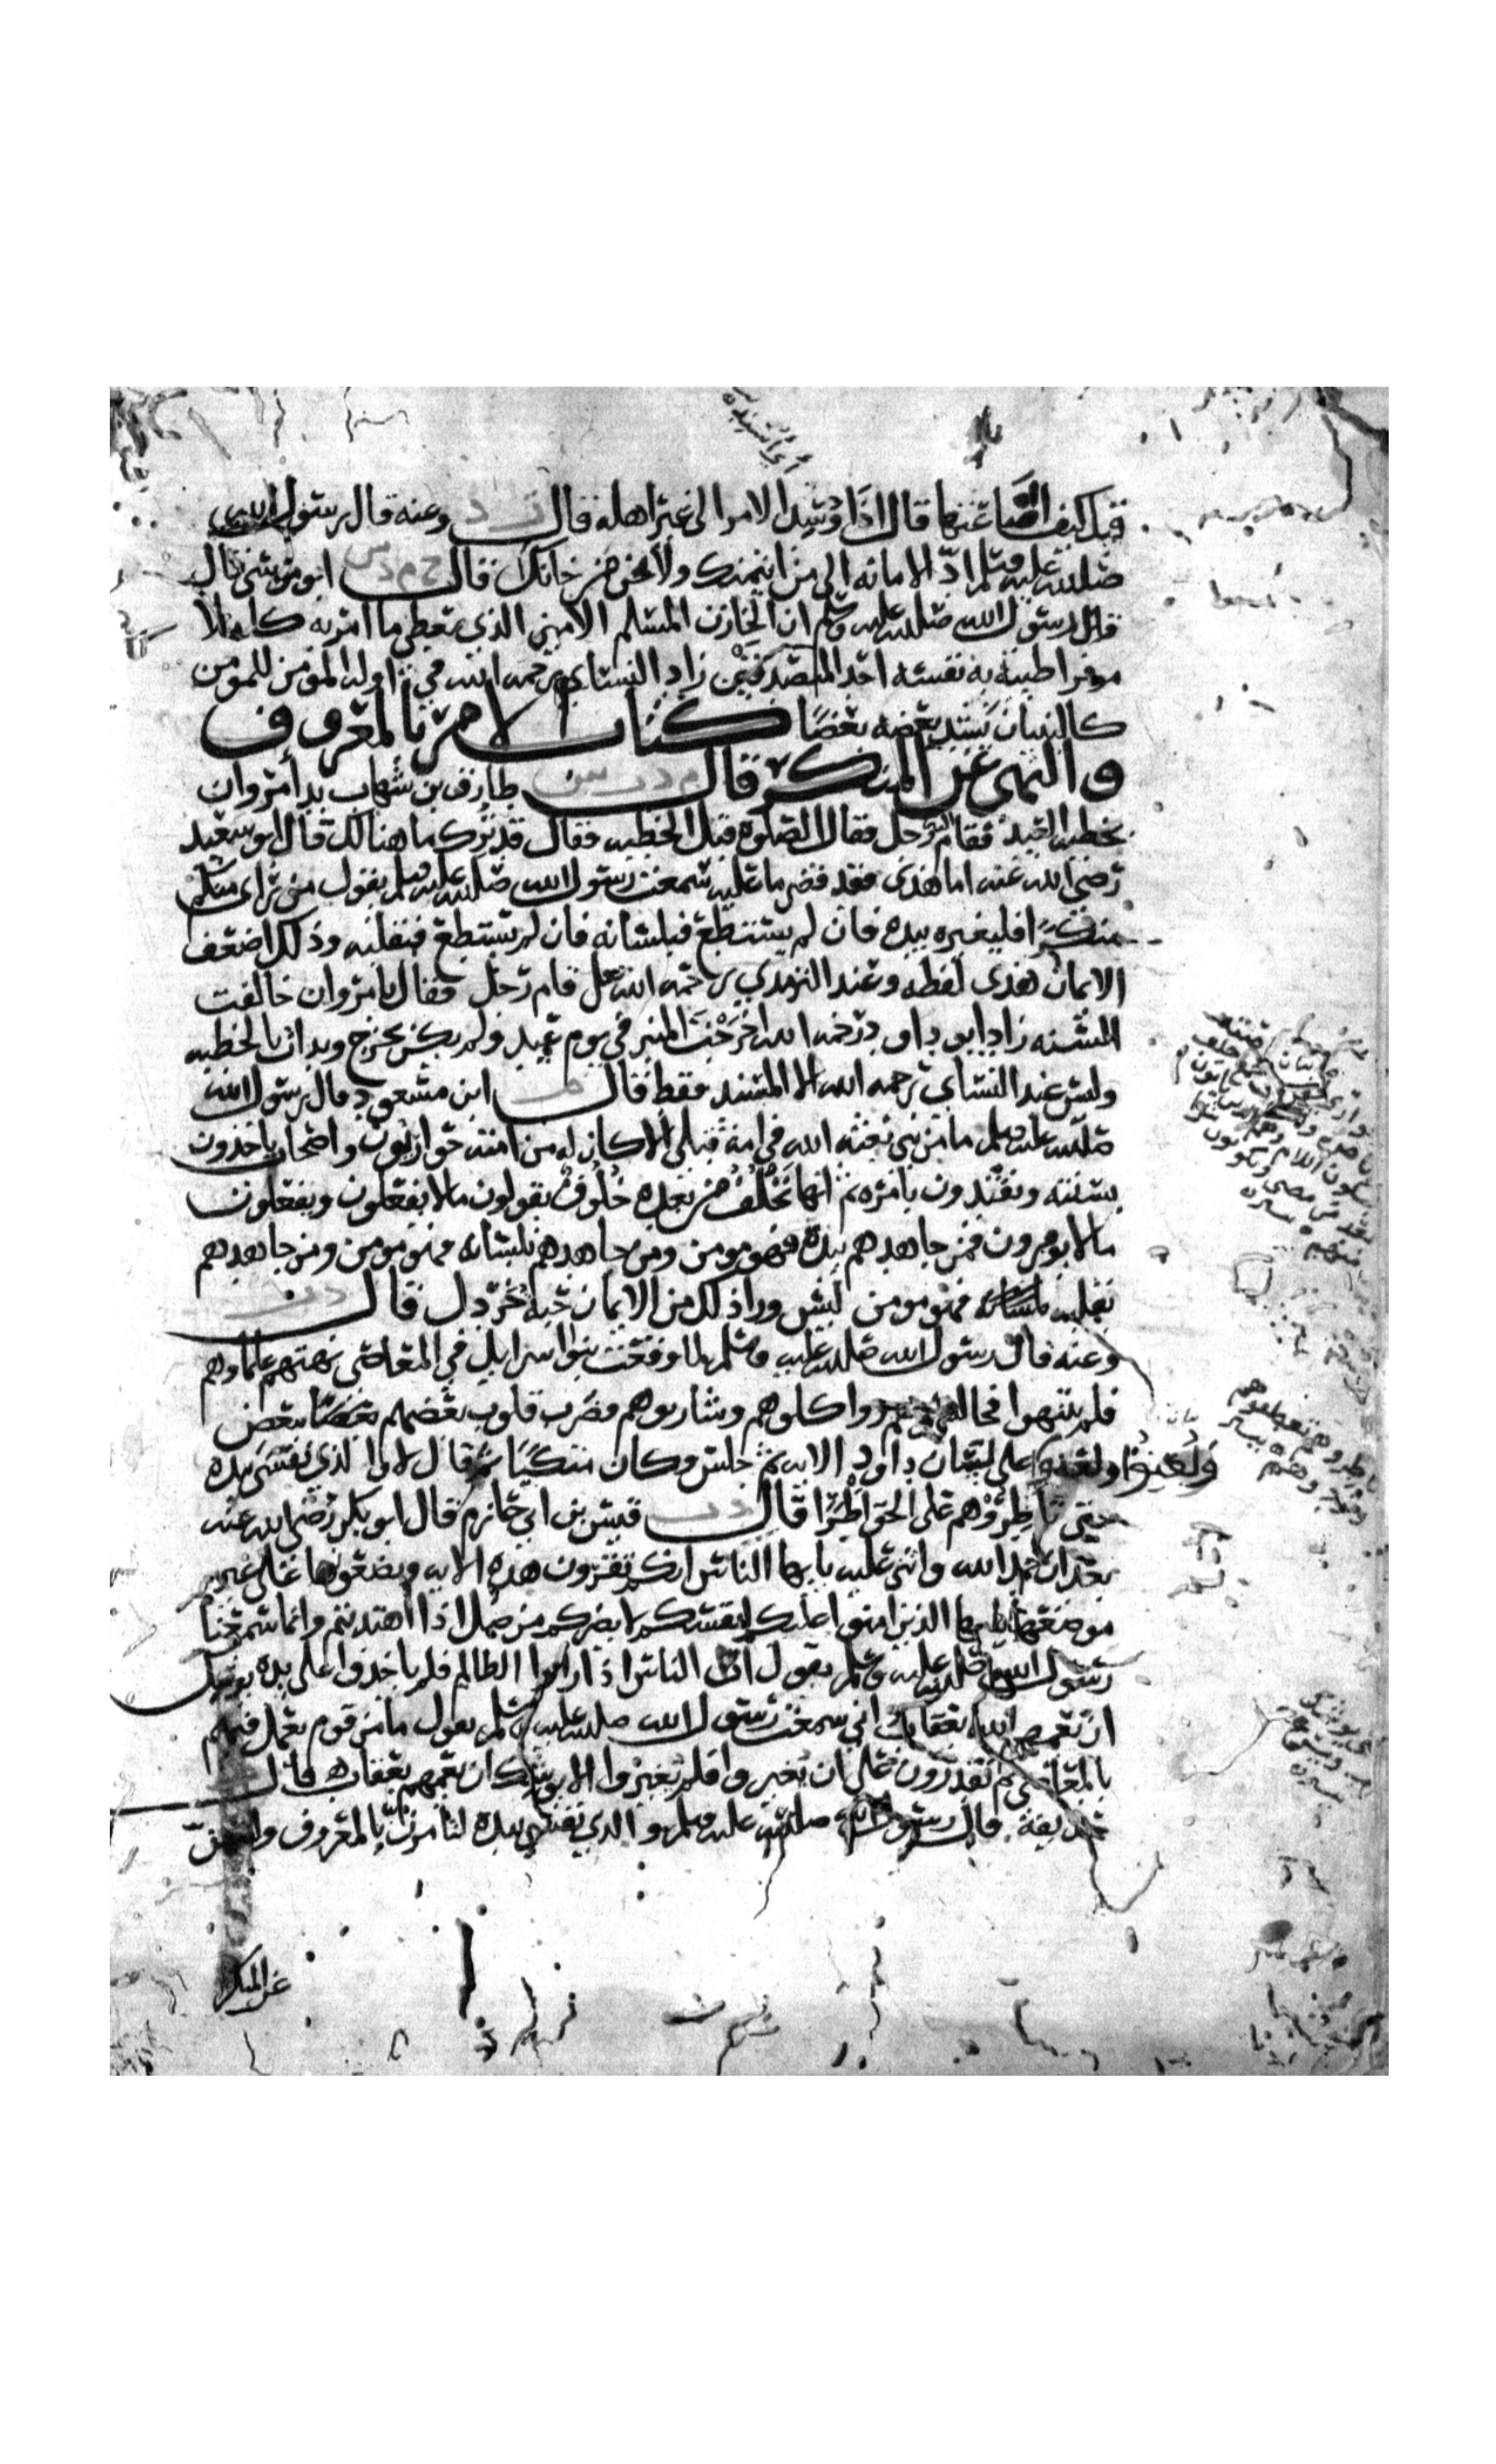 أي أسنده
قيل كيف اضاعتها قال اذا وُسِّد الامر الى غير اهله قال ت د وعنه قال رسول الله
صلى الله عليه وسلم ادّ الامانه الى من ايتمنك ولا تخن من خانك قال خ م د س ابو موسى قال
قال رسول الله صلى الله عليه وسلم ان الخازن المسلم الامين الذي يعطي ما امر به كاملا
موفرا طيبة به نفسه احد المتصدقين زاد النسائي رحمه الله في اوله المؤمن للمؤمن
كالبنيان يشد بعضه بعضا كتاب الامر بالمعروف
والنهي عن المنكر قال م د ت س طارق بن شهاب بدا مروان
بخطبه العيد فقام رجل فقال الصلوة قبل الخطبه فقال قد ترك ما هنالك قال ابو سعيد
رضي الله عنه اما هذى فقد قضى ما عليه سمعت رسول الله صلى الله عليه وسلم يقول من راى منكم
منكرا فليغيره بيده فان لم يستطع فبلسانه فان لم يستطع فبقلبه وذلك اضعف
الايمان هذى لفظه وعند الترمذي رحمه الله قام رجل فقال يا مروان خالفت
السنه زاد ابو داود رحمه الله اخرجت المنبر في يوم عيد ولم يكن يخرج وبدات بالخطبه
وليس عند النسائي رحمه الله الا المسند فقط قال م ابن مسعود قال رسول الله
صلى الله عليه وسلم ما من نبي بعثه الله في امة قبلي الا كان له من امته حواريون واصحاب ياخذون
بسنته ويقتدون بامره ثم انها تَخْلُفُ من بعده خُلُوفٌ يقولون مالا يفعلون ويفعلون
مالا يومرون فمن جاهدهم بيده فهو مومن ومن جاهدهم بلسانه فهو مومن ومن جاهدهم
بقلبه فهو مومن ليس ورا ذلك من الايمان حبة خردل قال د ت
وعنه قال رسول الله صلى الله عليه وسلم لما وقعت بنوا اسرايل في المعاصي نهتهم علماوهم
فلم ينتهوا فجالسوهم واكلوهم وشاربوهم فضرب قلوب بعضهم ببعض
ولعنوا على لسان داود الايه ثم جلس وكان متكيا ثم قال لا والذي نفسي بيده
حتى تاطروهم على الحق اطرا قال د ت قيس بن ابي حازم قال ابو بكر رضي الله عنه
بعد ان حمد الله واثنى عليه يا يها الناس انكم تقرون هذه الايه وتضعونها على غير
موضعها يا يها الذين امنوا عليكم انفسكم لا يضركم من ضل اذا اهتديتم وانما سمعنا
رسول الله صلى الله عليه وسلم يقول ان الناس اذا راوا الظالم فلم ياخذوا على يده يوشك
ان يعمهم الله بعقاب اني سمعت رسول الله صلى الله عليه وسلم يقول ما من قوم يعمل فيهم
بالمعاصي ثم تقدرون على ان تغيروا فلم تغيروا الا يوشك ان يعمهم بعقاب قال
حذيفة قال رسول الله صلى الله عليه وسلم والذي نفسي بيده لتامرن بالمعروف ولتنهون
عن المنكر